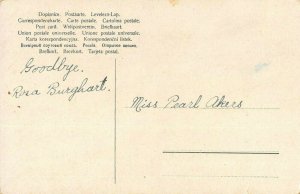 Dopisnice. Postaarte. Levelezo-Lap.
Correspondenzkarte. Carte postale. Cartolina postale.
Post card. Weltpostverein. Briefkaart.
Union postale universelle. Unione postale universale.
Karta korespondencyjna. Korespondenční listek.
Всемірный почтовый союзъ. Pocela. Открытое письмо.
Brefkort. Brevkort. Tarjeta postal.
Goodbye.
Rosa Burghart.
Miss Pearl Akers